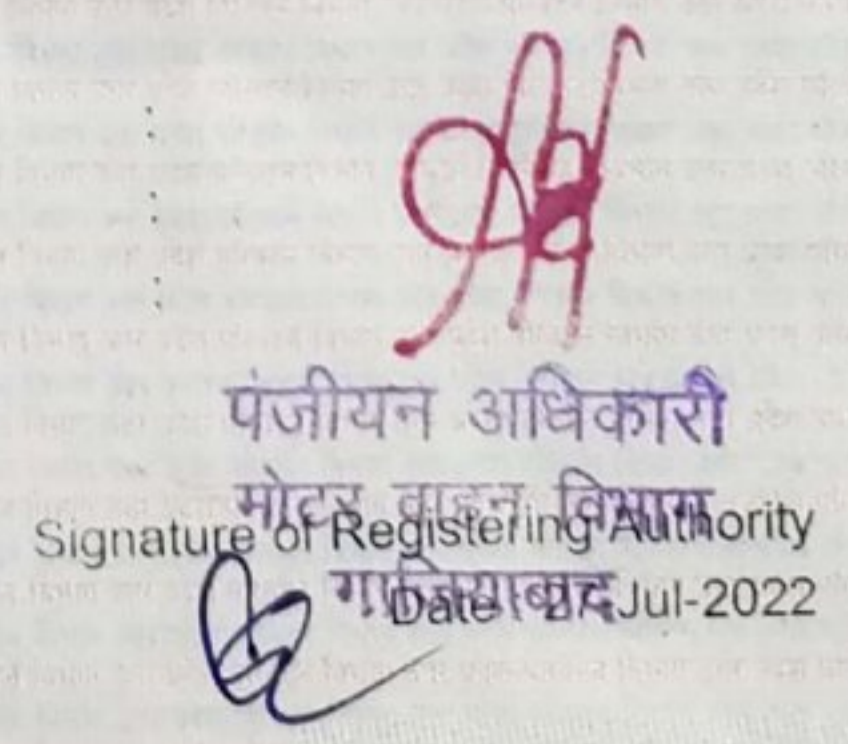 पंजीयन अधिकारी
मोटर वाहन विभाग
Signature of Registering Authority
गाजियाबाद
Date : 27-Jul-2022